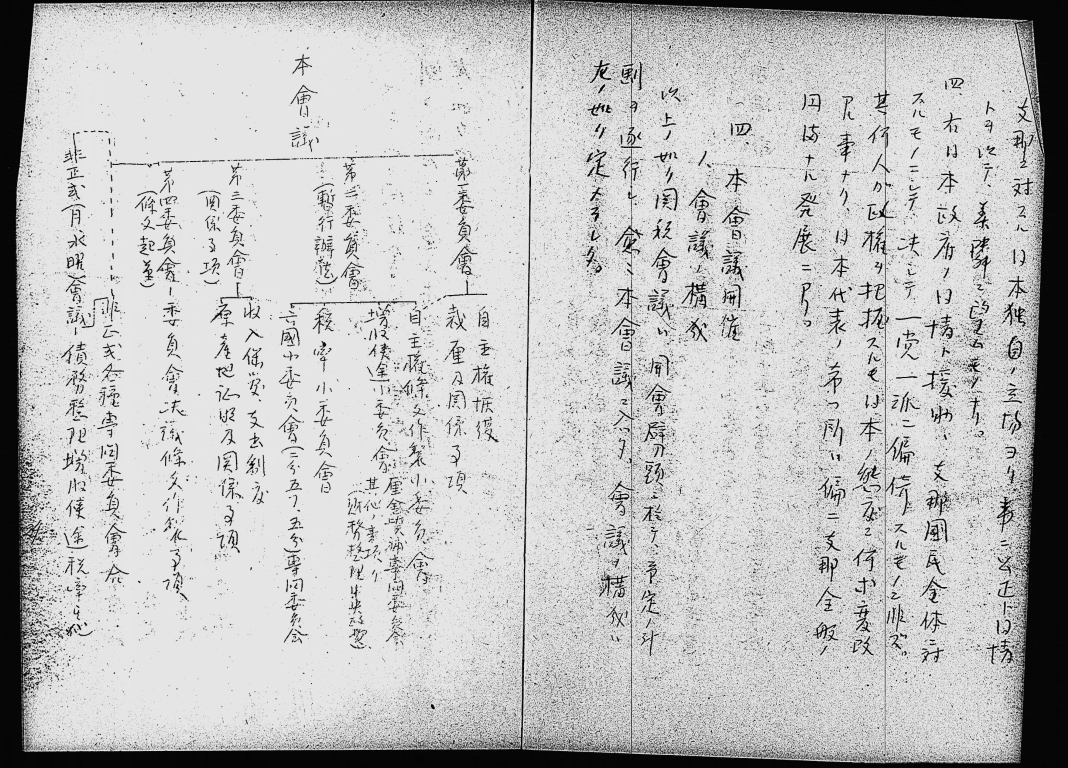 支那ニ対スル日本独自ノ立場ヨリ、事ニ公正ト同情
トヲ以テ、善隣ヲ望ムモノナリ。
四、右日本政府ノ同情ト援助ハ、支那國民全体ニ対
スルモノニシテ、決シテ一党一派ニ偏倚スルモノニ非ズ。
其何人ガ政権ヲ把握スルモ日本ノ態度ニ何ホ変改
ナル事ナク、日本代表ノ希フ所ハ偏ニ支那全般ノ
円満ナル発展ニアリ。
四、本會議開催
1、會議ノ構成
以上ノ如ク関税會議ハ、開會劈頭ニ於テ、予定ノ計
劃ヲ遂行シ、愈々本會議ニ入ッタ。會議ノ構成ハ
左ノ如ク定メラレタ。
本會議
第一委員會
自主権恢復
裁厘及関係事項
第二委員會
(暫行辦法)
自主権條文作製小委員會
増収使途小委員會
其他ノ事項
税率小委員會
六國小委員會(二分五了、五分)専門委員会
第三委員會
(関係事項)
収入保管支出制度
原産地証明及関係事項
第四委員會―委員會決議條文作製事項
(條文起草)
非正式各種専門委員會合
非正式(月、水曜)會議―債務整理、増収使途、税率其他